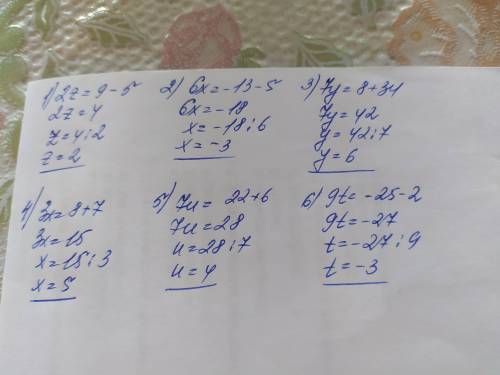 1) 2z = 9 - 5
2z = 4
z = 4 : 2
z = 2
2) 6x = -13 - 5
6x = -18
x = -18 : 6
x = -3
3) 7y = 8 + 34
7y = 42
y = 42 : 7
y = 6
4) 3x = 8 + 7
3x = 15
x = 15 : 3
x = 5
5) 7u = 22 + 6
7u = 28
u = 28 : 7
u = 4
6) 9t = -25 - 2
9t = -27
t = -27 : 9
t = -3